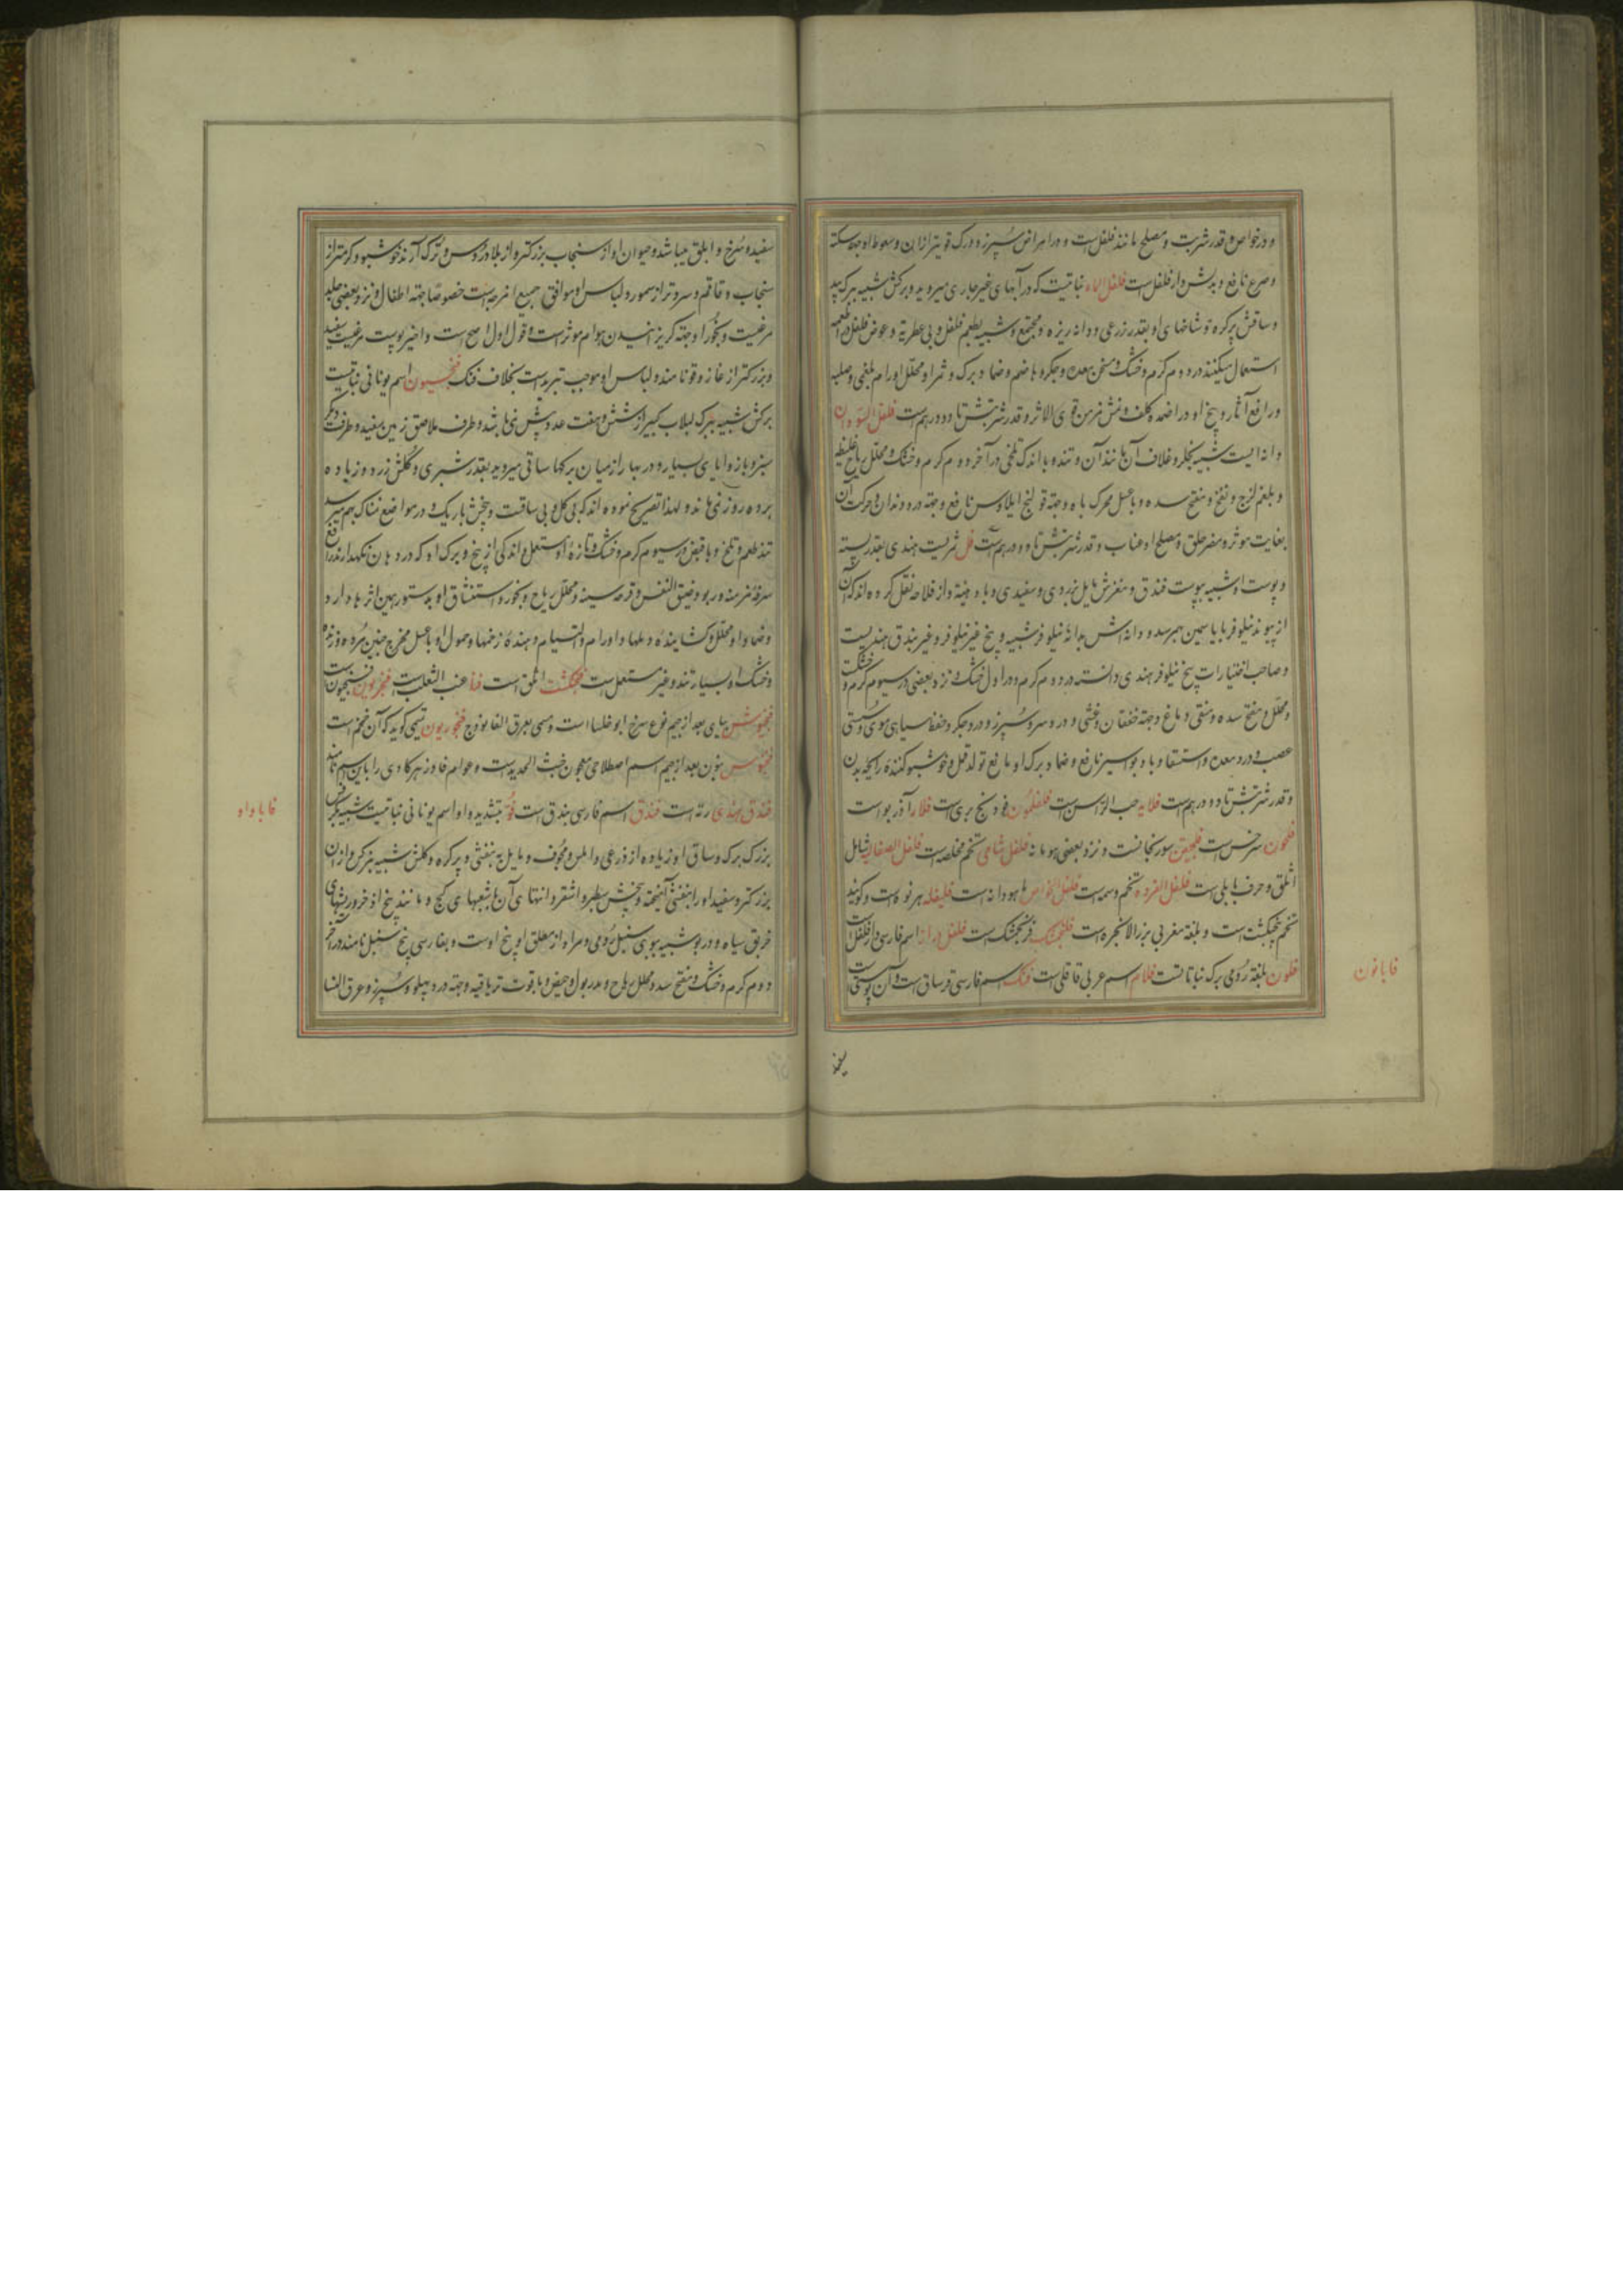 و در خواص و قدر شربت و مصلح مانند فلفل است و در امراض سپرز و درک قویتر ازان و سعوط او جهة سکته
و صرع نافع و بدلش دار فلفل است فلفل الماء نباتیست که در آبهای غیر جاری میروید و برکش شبیه ببرک بید
و ساقش پرکره و شاخهای او بقدر زرعی و دانه ریزه و مجتمع و شبیه بطعم فلفل و بی عطریة و عوض فلفل در اطعمه
استعمال میکنند در دوم کرم و خشک و مسخن معده و جکر و هاضم و ضماد برک و ثمر او محلل اورام بلغمی و صلبه
و رافع آثار و بیخ او در اضمده کلف و نمش مزمن قوی الاثر و قدر شربتش تا دو درهم است فلفل السودان
دانه ایست شبیه بجلر و غلاف آن مانند آن و تند و با اندک تلخی در آخر دوم کرم و خشک و محلل ریاح غلیظه
و بلغم لزج و نفخ و مفتح سده و با عسل محرک باه و جهة قولنج ایلاوس نافع و جهة درد دندان و حرکت آن
بغایت موثر و مضر حلق و مصلح او عناب و قدر شربتش تا دو درهم است فل ثمریست هندی بقدر پسته
و پوست او شبیه بپوست فندق و مغزش مایل بزردی و سفیدی و با دهنیة و از فلاحه نقل کرده اند که آن
از پیوند نیلوفر با یاسمین بهم میرسد و دانه اش بدانه نیلوفر شبیه و بیخ غیر نیلوفر و غیر بندق هندیست
و صاحب اختیارات بیخ نیلوفر هندی دانسته در دوم کرم و در اول خشک و نزد بعضی در سیوم کرم و خشکست
و محلل و مفتح سده و منقی دماغ و جهة خفقان و غشی و درد سر و سپرز و درد جکر و حفظ سیاهی موی و سستی
عصب و درد معده و استسقا و باد بواسیر نافع و ضماد برک او مانع تولد قمل و خوشبو کننده رایحه بدن
و قدر شربتش تا دو درهم است فلایه حب الراسن است فلفلمون فودنج بری است فلار آذربو است
فلحون سرخس است فلجیقن سورنجانست و نزد بعضی بومانه فلفل شامی تخم مخلصه است فلفل الصقالیه شامل
اثلق و حرف بابلی است فلفل القروده تخم وسمه است فلفل الخواص ماهودانه است فلیفله هرنوه است و کویند
تخم پنجنکشت است و بلغة مغربی بزر الانجره است فلنجمشک فرنجمشک است فلفل دراز اسم فارسی دار فلفل است
فلون بلغة رومی برک نباتاتست فلام اسم عربی قاقلی است فنک اسم فارسی قرساق است و آن پوستی
فا با نون
سفید
سفید و سرخ و ابلق میباشد و حیوان او از سنجاب بزرکتر و از بلاد روس و ترک آرند خوشبو و کرمتر از
سنجاب و قاقم و سردتر از سمور و لباس او موافق جمیع امزجه است خصوصا جهة اطفال و نزد بعضی جلد
مرغیست و بخور او جهة کریزانیدن هوام موثر است و قول اول اصح است و اخیر پوست مرغیست سفید
و بزرکتر از غاز و قو نامند و لباس او موجب تبرید است بخلاف فنک فنجیون اسم یونانی نباتیست
برکش شبیه ببرک لبلاب کبیر از شش و هفت عدد بیش نمی باشد و طرف ملاصق زمین سفید و طرف دیکر
سبز و با زوایای بسیار و در بهار از میان برکها ساقی میروید بقدر شبری و کلش زرد و زیاده
بر ده روز نمی ماند و لهذا تصریح نموده اند که بی کل و بی ساقست و بیخش باریک و در مواضع نمناک بهم میرسد
تند طعم و تلخ و با قبض در سیوم کرم و خشک و تازه او مستعمل و اندکی از بیخ و برک او که در دهان نکهدارند رافع
سرفه مزمنه و ربو و ضیق النفس و قرحه سینه و محلل ریاح و بخور و استنشاق او بدستور همین اثرها دارد
و ضماد او محلل و کشاینده دملها و اورام و التیام دهنده زخمها و حمول او با عسل مخرج جنین مرده و زنده
و خشک او بسیار تند و غیر مستعمل است فنجنکشت اثلق است فنا عنب الثعلب است فنجزیون فنجیون است
فنجیوش بیای بعد از جیم نوع سرخ ابو خلسا است و مسمی بعرق الفالوذج فنجوریون تمیمی کوید که آن فنجم است
فنجنوش بنون بعد از جیم اسم اصطلاحی معجون خبث الحدید است و عوام فادزهر کاری را باین اسم نامند
فندق هندی رته است فندق اسم فارسی بندق است فو بتشدید واو اسم یونانی نباتیست شبیه بکرفس
بزرک برک و ساق او زیاده از ذرعی و املس و مجوف و مایل به بنفشی و پرکره و کلش شبیه بنرکس و از آن
بزرکتر و سفید او را بنفشی آمیخته و بیخش سطبر و اشقر و انتهای آن با شعبهای کج و مانند بیخ اذخر و ریشهای
خربق سیاه و در بو شبیه ببوی سنبل رومی و مراد از مطلق او بیخ اوست و بفارسی بیخ سنبل نامند در آخر
دوم کرم و خشک و مفتح سدد و محلل ریاح و مدر بول و حیض و با قوت تریاقیه و جهة درد پهلو و سپرز و عرق النسا
فا با واو